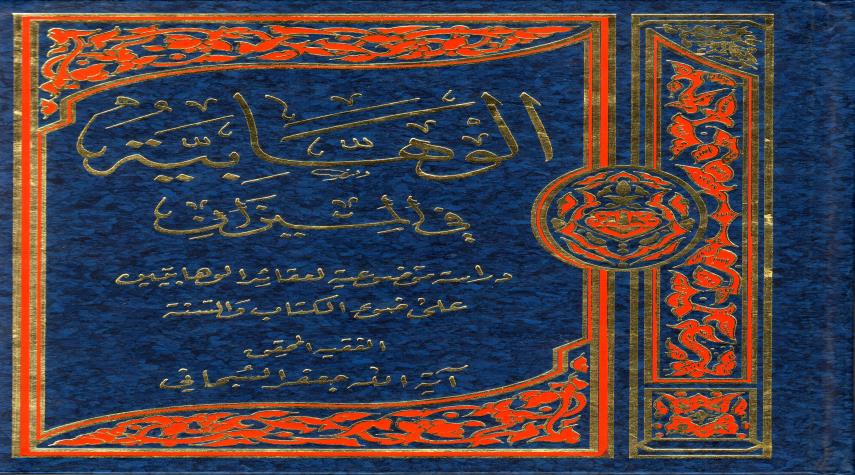 الوهَّابيَّةُ
في الميزان
دراسة موضوعية لعقائد الوهابيين
على ضوء الكتاب والسنة
الفقيه المحقق
آية الله جعفر السبحاني